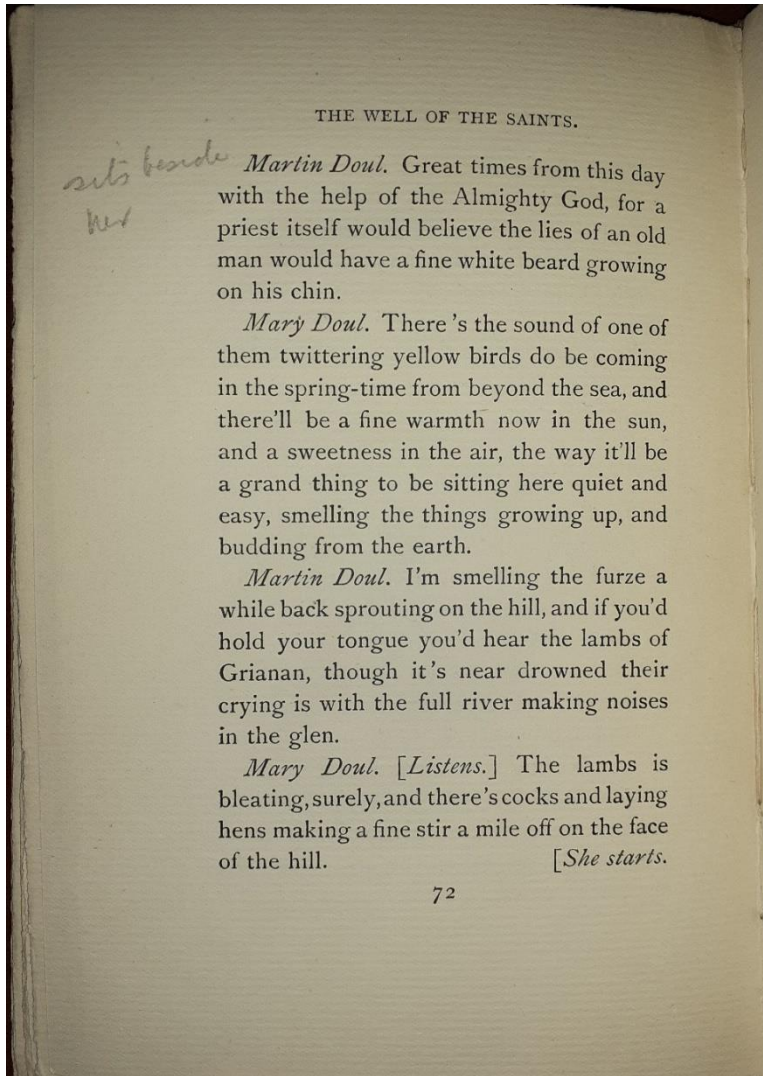 THE WELL OF THE SAINTS.
sits beside
her
Martin Doul. Great times from this day
with the help of the Almighty God, for a
priest itself would believe the lies of an old
man would have a fine white beard growing
on his chin.
Mary Doul. There's the sound of one of
them twittering yellow birds do be coming
in the spring-time from beyond the sea, and
there'll be a fine warmth now in the sun,
and a sweetness in the air, the way it'll be
a grand thing to be sitting here quiet and
easy, smelling the things growing up, and
budding from the earth.
Martin Doul. I'm smelling the furze a
while back sprouting on the hill, and if you'd
hold your tongue you'd hear the lambs of
Grianan, though it's near drowned their
crying is with the full river making noises
in the glen.
Mary Doul. [Listens.] The lambs is
bleating, surely, and there's cocks and laying
hens making a fine stir a mile off on the face
of the hill. [She starts.
72